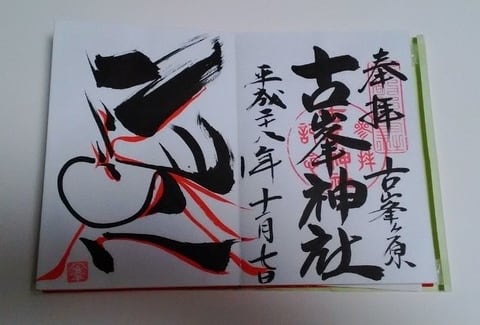 奉拝 古峯ヶ原
古峯神社
平成二十八年 十二月七日